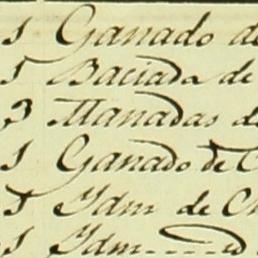 1 Ganado de
5 Baciada de
3 Manadas de
1 Ganado de C
5 Ydm de Ch
1 Ydm